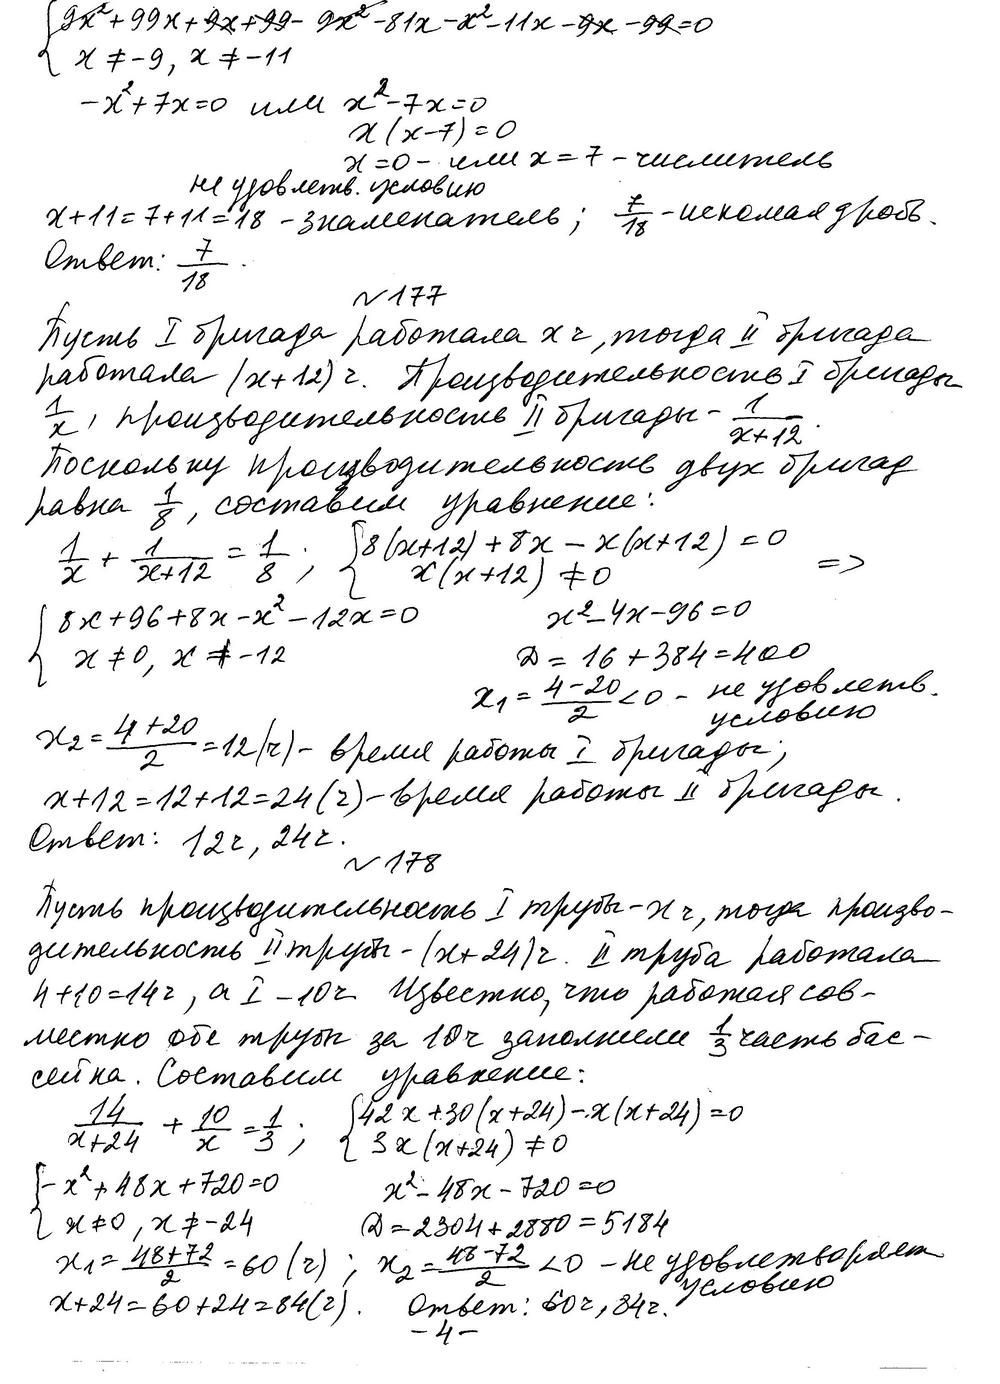 9x² + 99x + 9x + 99 - 9x² - 81x - x² - 11x - 9x - 99 = 0
x ≠ -9, x ≠ -11
-x² + 7x = 0 или x² - 7x = 0
x(x-7) = 0
x = 0 - или x = 7 - числитель
не удовлетв. условию
x + 11 = 7 + 11 = 18 - знаменатель; 7/18 - искомая дробь.
Ответ: 7/18.
~177
Пусть I бригада работала x ч, тогда II бригада
работала (x+12) ч. Производительность I бригады
1/x, производительность II бригады - 1/(x+12).
Поскольку производительность двух бригад
равна 1/8, составим уравнение:
1/x + 1/(x+12) = 1/8; { 8(x+12) + 8x - x(x+12) = 0
x(x+12) ≠ 0 =>
{ 8x + 96 + 8x - x² - 12x = 0 x² - 4x - 96 = 0
x ≠ 0, x ≠ -12 D = 16 + 384 = 400
x₁ = (4-20)/2 < 0 - не удовлетв.
условию
x₂ = (4+20)/2 = 12 (ч) - время работы I бригады;
x + 12 = 12 + 12 = 24 (ч) - время работы II бригады.
Ответ: 12ч, 24ч.
~178
Пусть производительность I трубы - x ч, тогда произво-
дительность II трубы - (x+24) ч. II труба работала
4+10=14ч, а I - 10ч Известно, что работая сов-
местно обе трубы за 10ч заполнили 1/3 часть бас-
сейна. Составим уравнение:
14/(x+24) + 10/x = 1/3; { 42x + 30(x+24) - x(x+24) = 0
3x(x+24) ≠ 0
{ -x² + 48x + 720 = 0 x² - 48x - 720 = 0
x ≠ 0, x ≠ -24 D = 2304 + 2880 = 5184
x₁ = (48+72)/2 = 60 (ч); x₂ = (48-72)/2 < 0 - не удовлетворяет
условию
x + 24 = 60 + 24 = 84 (ч). Ответ: 60ч, 84ч.
-4-